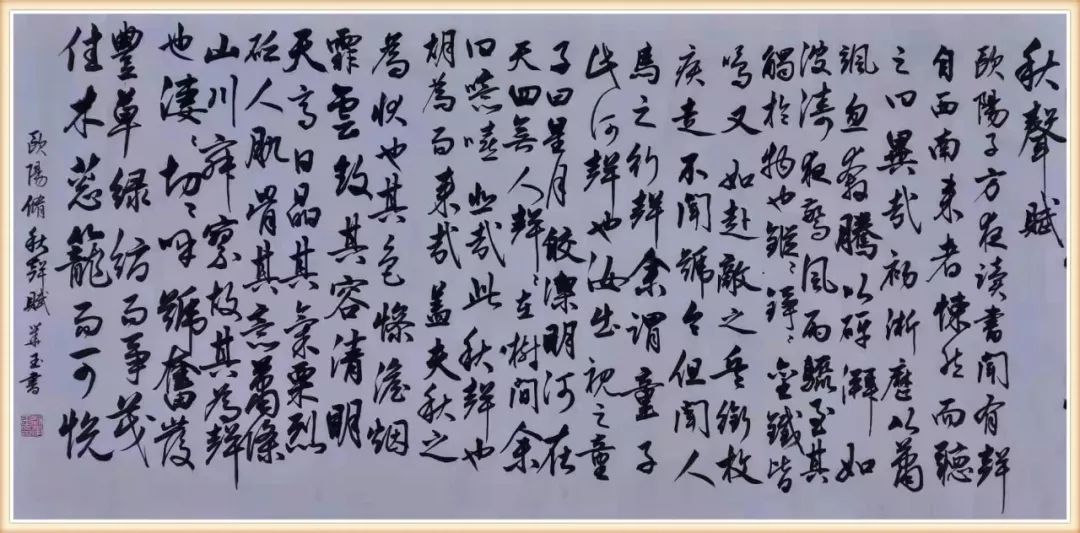 秋聲賦
歐陽子方夜读書聞有聲
自西南来者悚然而聽
之曰異哉初淅瀝以蕭
颯忽奔騰以砰湃如
波濤夜驚风雨驟至其
觸於物也鏦々錚々金鐵皆
鳴又如赴敵之兵銜枚
疾走不聞號令但聞人
馬之行聲余謂童子
此何聲也汝出視之童
子曰星月皎潔明河在
天四無人聲々在樹间余
曰噫嘻悲哉此秋聲也
胡為而来哉盖夫秋之
為狀也其色惨澹烟
霏雲斂其容清明
天高日晶其氣栗烈
砭人肌骨其意蕭條
山川寂寥故其為聲
也淒々切々呼號奮發
豐草绿缛而争茂
佳木葱籠而可悦
歐陽脩秋聲賦 華玉書